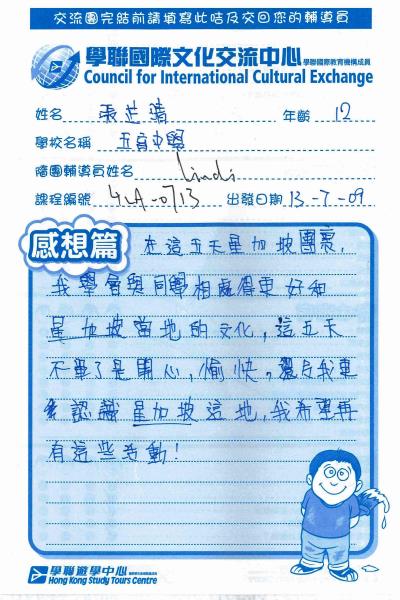 交流團完結前請填寫此咭及交回您的輔導員
學聯國際文化交流中心 學聯國際教育機構成員
Council for International Cultural Exchange
姓名 張芷漪 年齡 12
學校名稱 五育中學
隨團輔導員姓名 Lindi
課程編號 42A-0713 出發日期 13-7-09
感想篇
在這五天星加坡團裏,
我學會與同學相處得更好和
星加坡當地的文化,這五天
不單了是開心,愉快。還反我更
認識星加坡這地,我希望再
有這些活動!
學聯遊學中心
Hong Kong Study Tours Centre